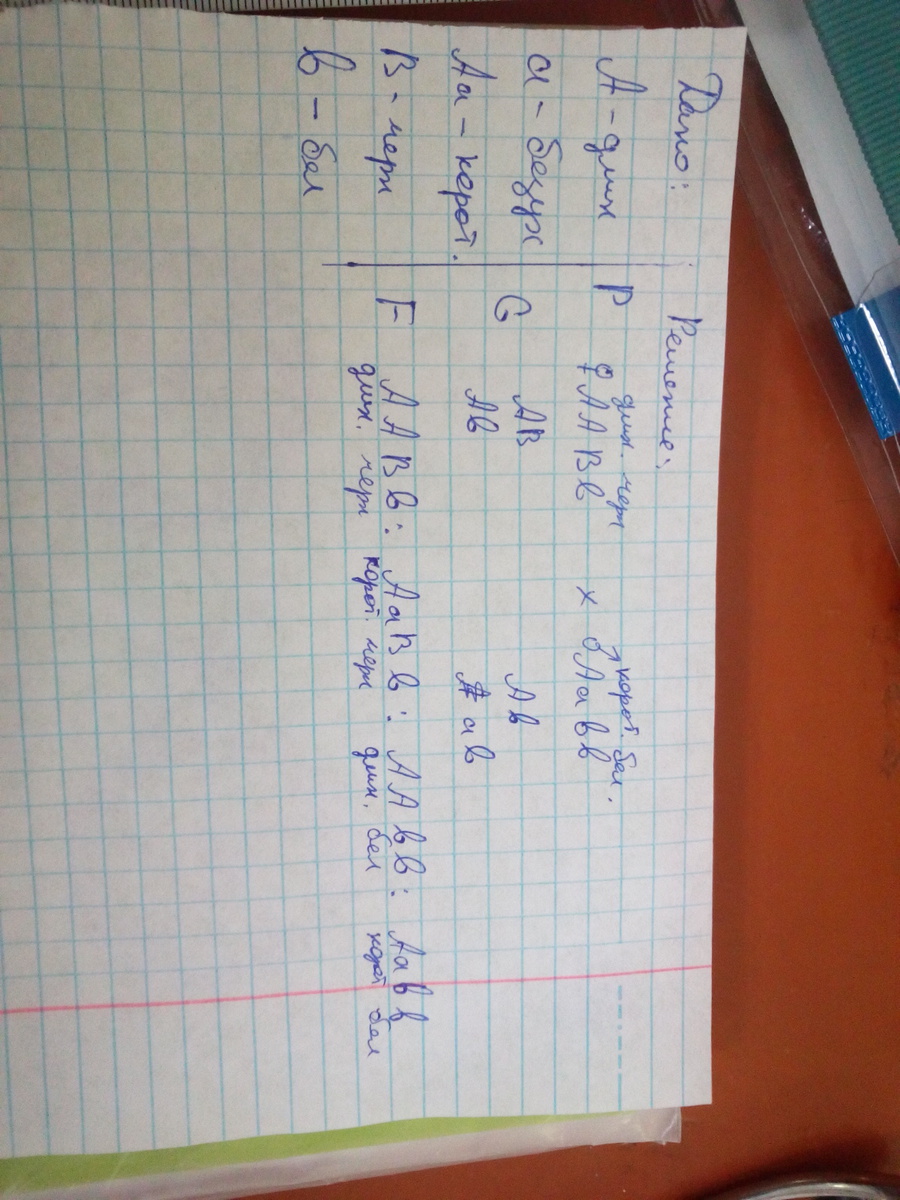 Дано:
А - длин
а - безух
Аа - корот.
В - черн
в - бел
Решение:
длин. черн корот. бел.
Р ♀ААВв х ♂Аавв
G АВ Ав
Ав ав
F ААВв: АаВв: ААвв: Аавв
длин. черн корот. черн длин. бел корот бел